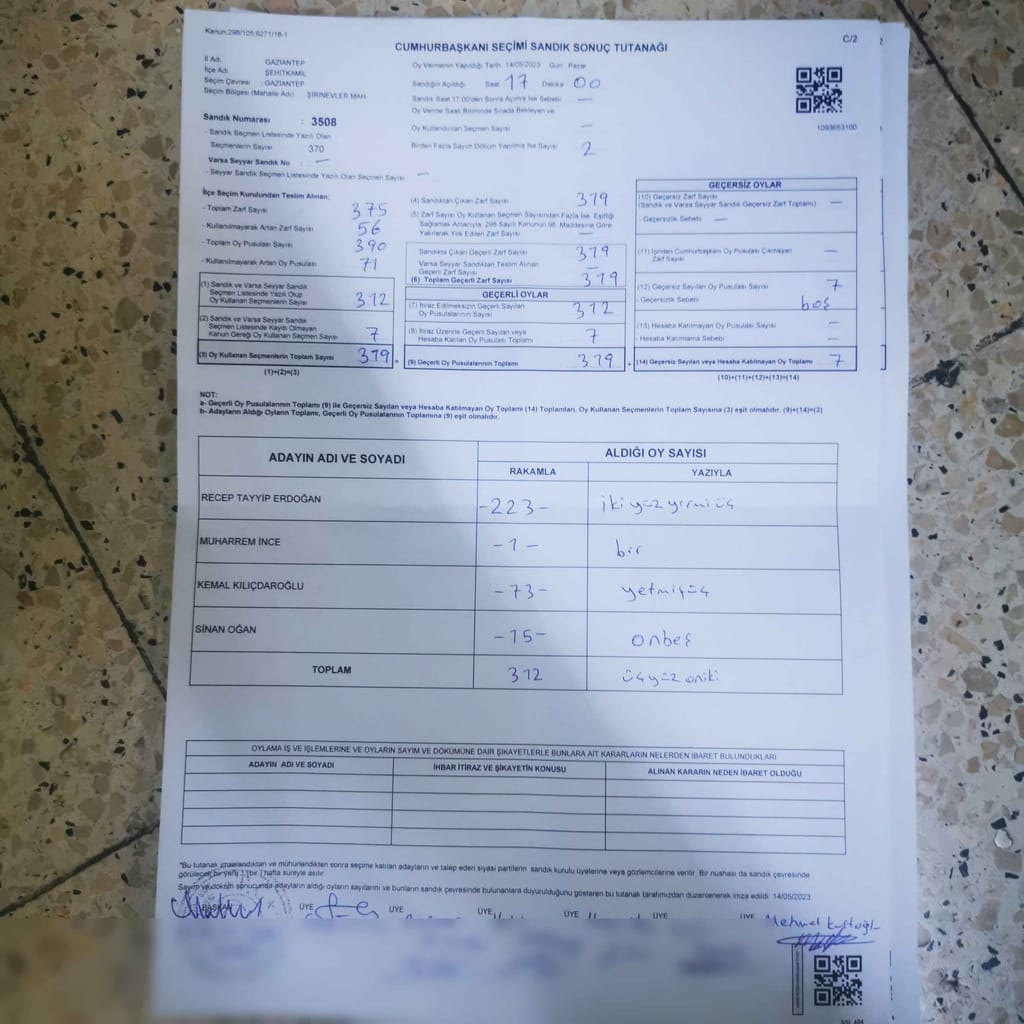 Kanun:298/105,6271/18-1
C/2
CUMHURBAŞKANI SEÇİMİ SANDIK SONUÇ TUTANAĞI
İl Adı : GAZİANTEP
İlçe Adı : ŞEHİTKAMİL
Seçim Çevresi : GAZİANTEP
Seçim Bölgesi (Mahalle Adı) : ŞİRİNEVLER MAH.
Sandık Numarası : 3508
- Sandık Seçmen Listesinde Yazılı Olan
Seçmenlerin Sayısı : 370
Varsa Seyyar Sandık No : —
- Seyyar Sandık Seçmen Listesinde Yazılı Olan Seçmen Sayısı —
Oy Vermenin Yapıldığı Tarih 14/05/2023 Gün Pazar
Sandığın Açıldığı Saat 17 Dakika 00
Sandık Saat 17:00'den Sonra Açılmış İse Sebebi —
Oy Verme Saati Bitiminde Sırada Bekleyen ve
Oy Kullandırılan Seçmen Sayısı —
Birden Fazla Sayım Döküm Yapılmış İse Sayısı 2
1093653100
İlçe Seçim Kurulundan Teslim Alınan;
- Toplam Zarf Sayısı 375
- Kullanılmayarak Artan Zarf Sayısı 56
- Toplam Oy Pusulası Sayısı 390
- Kullanılmayarak Artan Oy Pusulası 71
(1) Sandık ve Varsa Seyyar Sandık
Seçmen Listesinde Yazılı Olup
Oy Kullanan Seçmenlerin Sayısı 312
(2) Sandık ve Varsa Seyyar Sandık
Seçmen Listesinde Kayıtlı Olmayan
Kanun Gereği Oy Kullanan Seçmen Sayısı 7
(3) Oy Kullanan Seçmenlerin Toplam Sayısı 319
(1)+(2)=(3)
(4) Sandıktan Çıkan Zarf Sayısı 319
(5) Zarf Sayısı Oy Kullanan Seçmen Sayısından Fazla İse, Eşitliği
Sağlamak Amacıyla, 298 Sayılı Kanunun 98. Maddesine Göre
Yakılarak Yok Edilen Zarf Sayısı —
Sandıkta Çıkan Geçerli Zarf Sayısı 319
Varsa Seyyar Sandıktan Teslim Alınan
Geçerli Zarf Sayısı —
(6) Toplam Geçerli Zarf Sayısı 319
GEÇERLİ OYLAR
(7) İtiraz Edilmeksizin Geçerli Sayılan
Oy Pusulalarının Sayısı 312
(8) İtiraz Üzerine Geçerli Sayılan veya
Hesaba Katılan Oy Pusulası Sayısı 7
(9) Geçerli Oy Pusulalarının Toplamı 319
GEÇERSİZ OYLAR
(10) Geçersiz Zarf Sayısı
(Sandık ve Varsa Seyyar Sandık Geçersiz Zarf Toplamı) —
- Geçersizlik Sebebi —
(11) İçinden Cumhurbaşkanı Oy Pusulası Çıkmayan
Zarf Sayısı —
(12) Geçersiz Sayılan Oy Pusulası Sayısı 7
- Geçersizlik Sebebi boş
(13) Hesaba Katılmayan Oy Pusulası Sayısı —
Hesaba Katılmama Sebebi —
(14) Geçersiz Sayılan veya Hesaba Katılmayan Oy Toplamı 7
(10)+(11)+(12)+(13)=(14)
NOT:
a- Geçerli Oy Pusulalarının Toplamı (9) ile Geçersiz Sayılan veya Hesaba Katılmayan Oy Toplamı (14) Toplamları, Oy Kullanan Seçmenlerin Toplam Sayısına (3) eşit olmalıdır. (9)+(14)=(3)
b- Adayların Aldığı Oyların Toplamı, Geçerli Oy Pusulalarının Toplamına (9) eşit olmalıdır.
ADAYIN ADI VE SOYADI
ALDIĞI OY SAYISI
RAKAMLA YAZIYLA
RECEP TAYYİP ERDOĞAN -223- iki yüz yirmi üç
MUHARREM İNCE -1- bir
KEMAL KILIÇDAROĞLU -73- yetmişüç
SİNAN OĞAN -15- onbeş
TOPLAM 312 üçyüz oniki
OYLAMA İŞ VE İŞLEMLERİNE VE OYLARIN SAYIM VE DÖKÜMÜNE DAİR ŞİKAYETLERLE BUNLARA AİT KARARLARIN NELERDEN İBARET BULUNDUKLARI
ADAYIN ADI VE SOYADI İHBAR İTİRAZ VE ŞİKAYETİN KONUSU ALINAN KARARIN NEDEN İBARET OLDUĞU
*Bu tutanak imzalandıktan ve mühürlendikten sonra seçime katılan adayların ve talep eden siyasi partilerin sandık kurulu üyelerine veya gözlemcilerine verilir. Bir nüshası da sandık çevresinde
görülecek bir yere 1 (bir) hafta süreyle asılır.
Sayım ve döküm sonucunda adayların aldığı oyların sayılarını ve bunların sandık çevresinde bulunanlara duyurulduğunu gösteren bu tutanak tarafımızdan düzenlenerek imza edildi. 14/05/2023
BAŞKAN ÜYE ÜYE ÜYE ÜYE ÜYE ÜYE
Mehmet